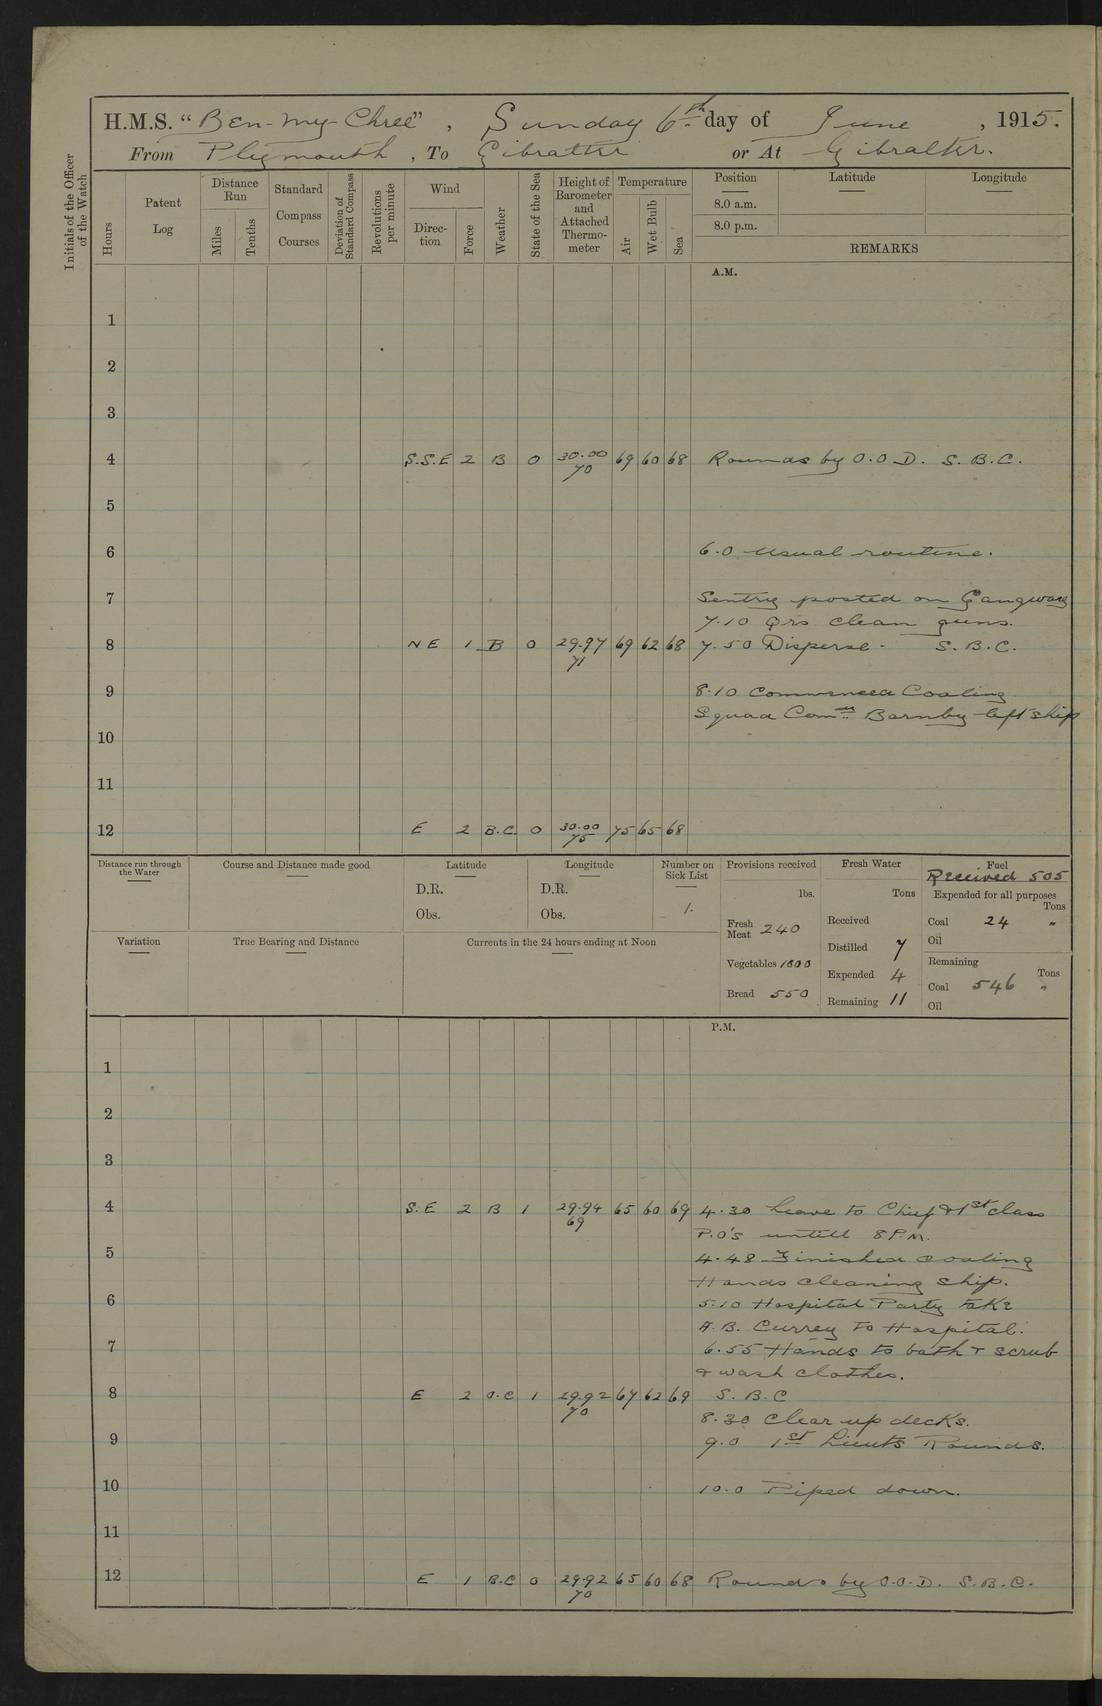 H.M.S. "Ben-my-Chree", Sunday 6th day of June, 1915.
From Plymouth, To Gibralter or At Gibralter.
Initials of the Officer of the Watch
Hours
Patent Log
Distance Run
Miles
Tenths
Standard Compass Courses
Deviation of Standard Compass
Revolutions per minute
Wind
Direction
Force
Weather
State of the Sea
Height of Barometer and Attached Thermometer
Temperature
Air
Wet Bulb
Sea
Position Latitude Longitude
8.0 a.m.
8.0 p.m.
REMARKS
A.M.
1
2
3
4 S.S.E 2 B 0 30.00 70 69 60 68 Rounds by O.O.D. S.B.C.
5
6 6.0 Usual routine.
7 Sentry posted on Gangway
7.10 Qrs clean guns.
8 NE 1 B 0 29.97 71 69 62 68 7.50 Disperse. S.B.C.
9 8.10 Commenced Coaling
Squad Comr Barnby left ship
10
11
12 E 2 B.C. 0 30.00 75 75 65 68
Distance run through the Water
Course and Distance made good
Latitude
D.R.
Obs.
Longitude
D.R.
Obs.
Number on Sick List
1.
Variation
True Bearing and Distance
Currents in the 24 hours ending at Noon
Provisions received
lbs.
Fresh Meat 240
Vegetables 1000
Bread 550
Fresh Water
Tons
Received
Distilled 7
Expended 4
Remaining 11
Fuel
Received 505
Expended for all purposes
Tons
Coal 24 "
Oil
Remaining
Tons
Coal 546 "
Oil
P.M.
1
2
3
4 S.E 2 B 1 29.94 69 65 60 69 4.30 Leave to Chief & 1st class
P.O's untill 8 P.M.
5 4.48 Finished coaling
Hands cleaning ship.
6 5.10 Hospital Party take
A.B. Currey to Hospital.
7 6.55 Hands to bath & scrub
& wash clothes.
8 E 2 O.C 1 29.92 70 67 62 69 S.B.C
8.30 Clear up decks.
9 9.0 1st Lieuts Rounds.
10 10.0 Piped down.
11
12 E 1 B.C 0 29.92 70 65 60 68 Rounds by O.O.D. S.B.C.